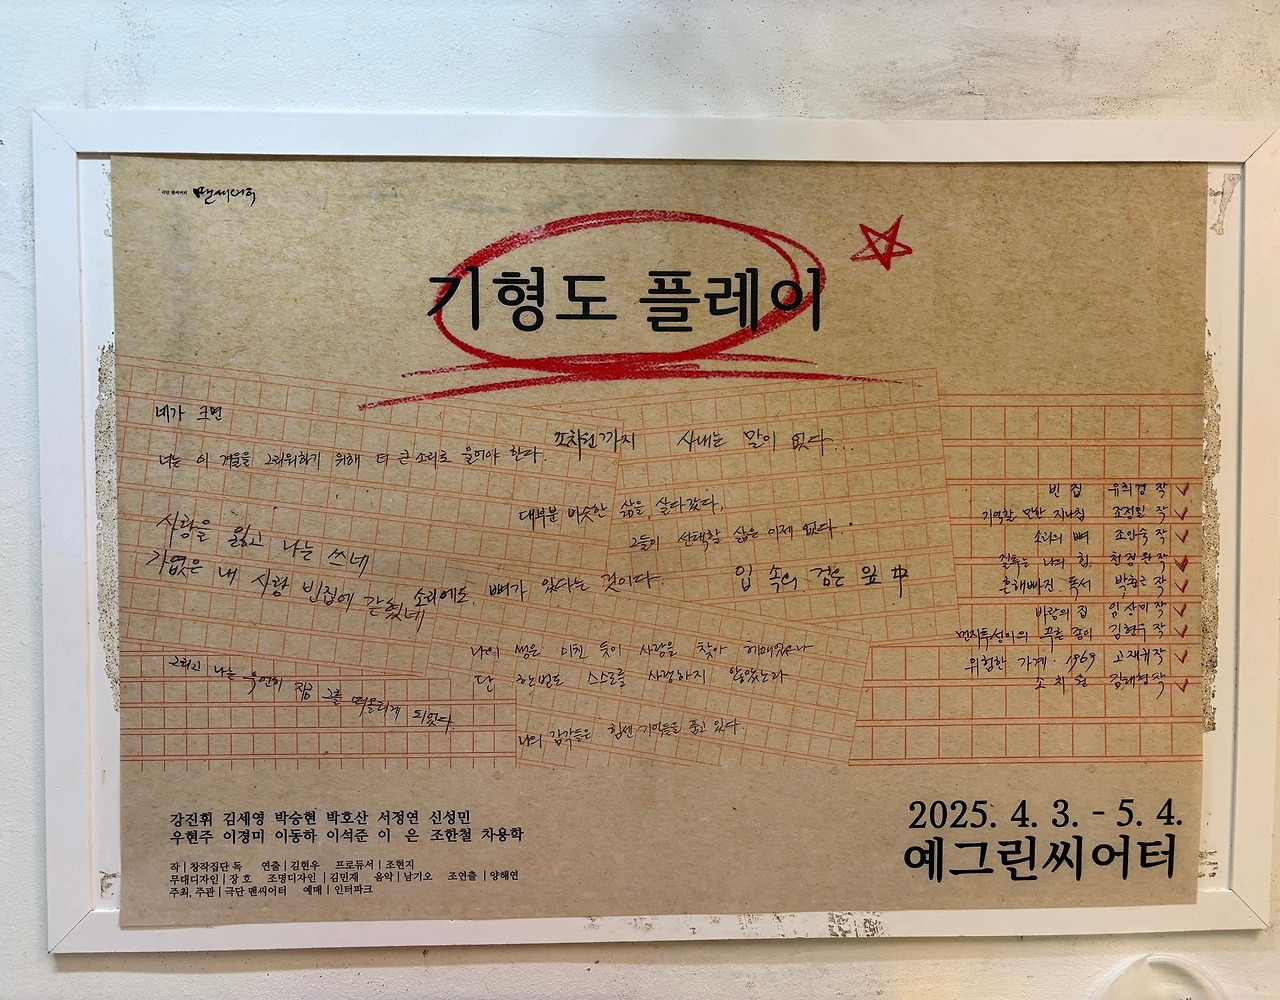 극단 맨씨어터 맨씨어터
기형도 플레이
네가 크면
너는 이 겨울을 그리워하기 위해 더 큰소리로 울어야 한다.
조치원까지 사내는 말이 없다...
대부분 비슷한 삶을 살다갔다,
그들이 선택할 삶은 이제 없다.
사랑을 잃고 나는 쓰네
가엾은 내 사랑 빈집에 갇혔네
소리에도 뼈가 있다는 것이다.
입 속의 검은 잎 中
나의 생은 미친 듯이 사랑을 찾아 헤매었으나
단 한번도 스스로를 사랑하지 않았노라
그리고 나는 우연히 지금 그를 떠올리게 되었다.
나의 감각들은 힘센 기억들을 품고 있다.
빈 집 유희경 작
기억할 만한 지나침 조정일 작
소리의 뼈 조인숙 작
질투는 나의 힘 천정완 작
흔해빠진 독서 박춘근 작
바람의 집 임상미 작
먼지투성이의 푸른 종이 김현우 작
위험한 가계·1969 고재귀 작
조치원 김태형 작
강진휘 김세영 박승현 박호산 서정연 신성민
우현주 이경미 이동하 이석준 이 은 조한철 차용학
작 | 창작집단 독 연출 | 김현우 프로듀서 | 조현지
무대디자인 | 장 호 조명디자인 | 김민재 음악 | 남기오 조연출 | 양해연
주최, 주관 | 극단 맨씨어터 예매 | 인터파크
2025. 4. 3. - 5. 4.
예그린씨어터